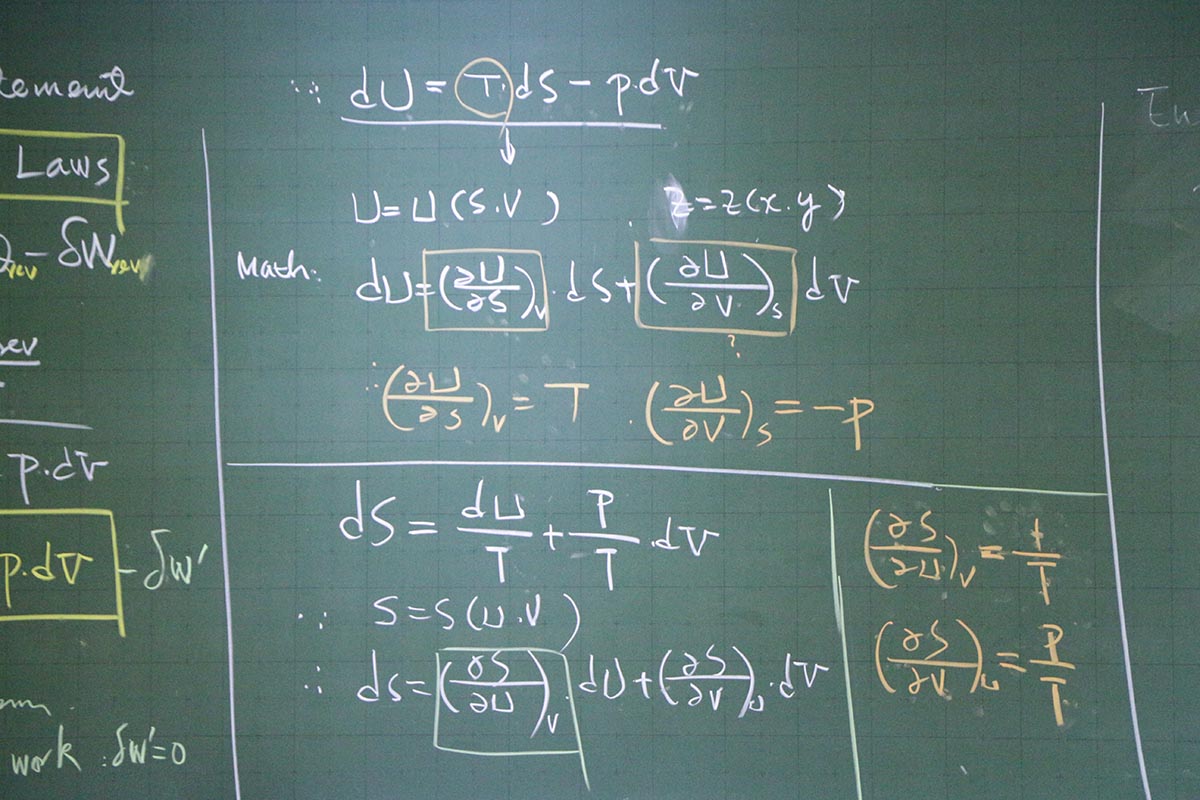 tement
Laws
rev − δWrev
rev
p.dV
p.dV − δw'
work : δw'=0
∵ dU = T.dS − p.dV
↓
U=U(S.V) z=z(x.y)
Math: dU=(∂U/∂S)V . dS+(∂U/∂V)S dV
?
∴(∂U/∂S)V = T . (∂U/∂V)S = −P
dS = dU/T + P/T .dV
∵ S=S(U.V)
∴ dS=(∂S/∂U)V . dU+(∂S/∂V)U .dV
(∂S/∂U)V = 1/T
(∂S/∂V)U = P/T